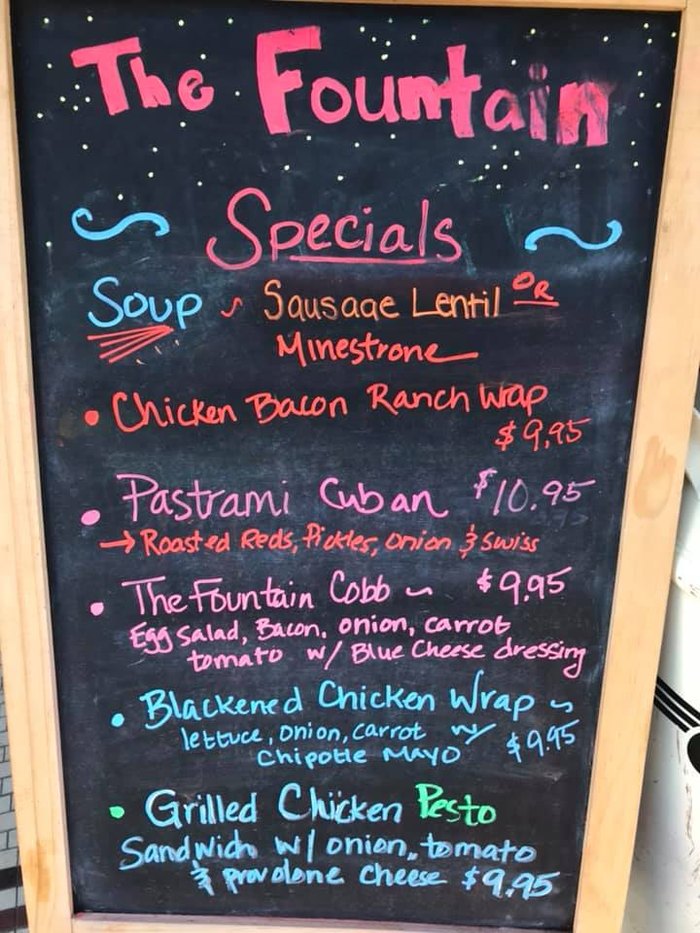 The Fountain
Specials
Soup ~ Sausage Lentil OR
Minestrone
• Chicken Bacon Ranch Wrap
$9.95
• Pastrami Cuban $10.95
→ Roasted Reds, Pickles, onion & Swiss
• The Fountain Cobb ~ $9.95
Egg Salad, Bacon, onion, carrot
tomato w/ Blue Cheese dressing
• Blackened Chicken Wrap ~
lettuce, onion, carrot w/
Chipotle Mayo $9.95
• Grilled Chicken Pesto
Sandwich w/ onion, tomato
& provolone cheese $9.95